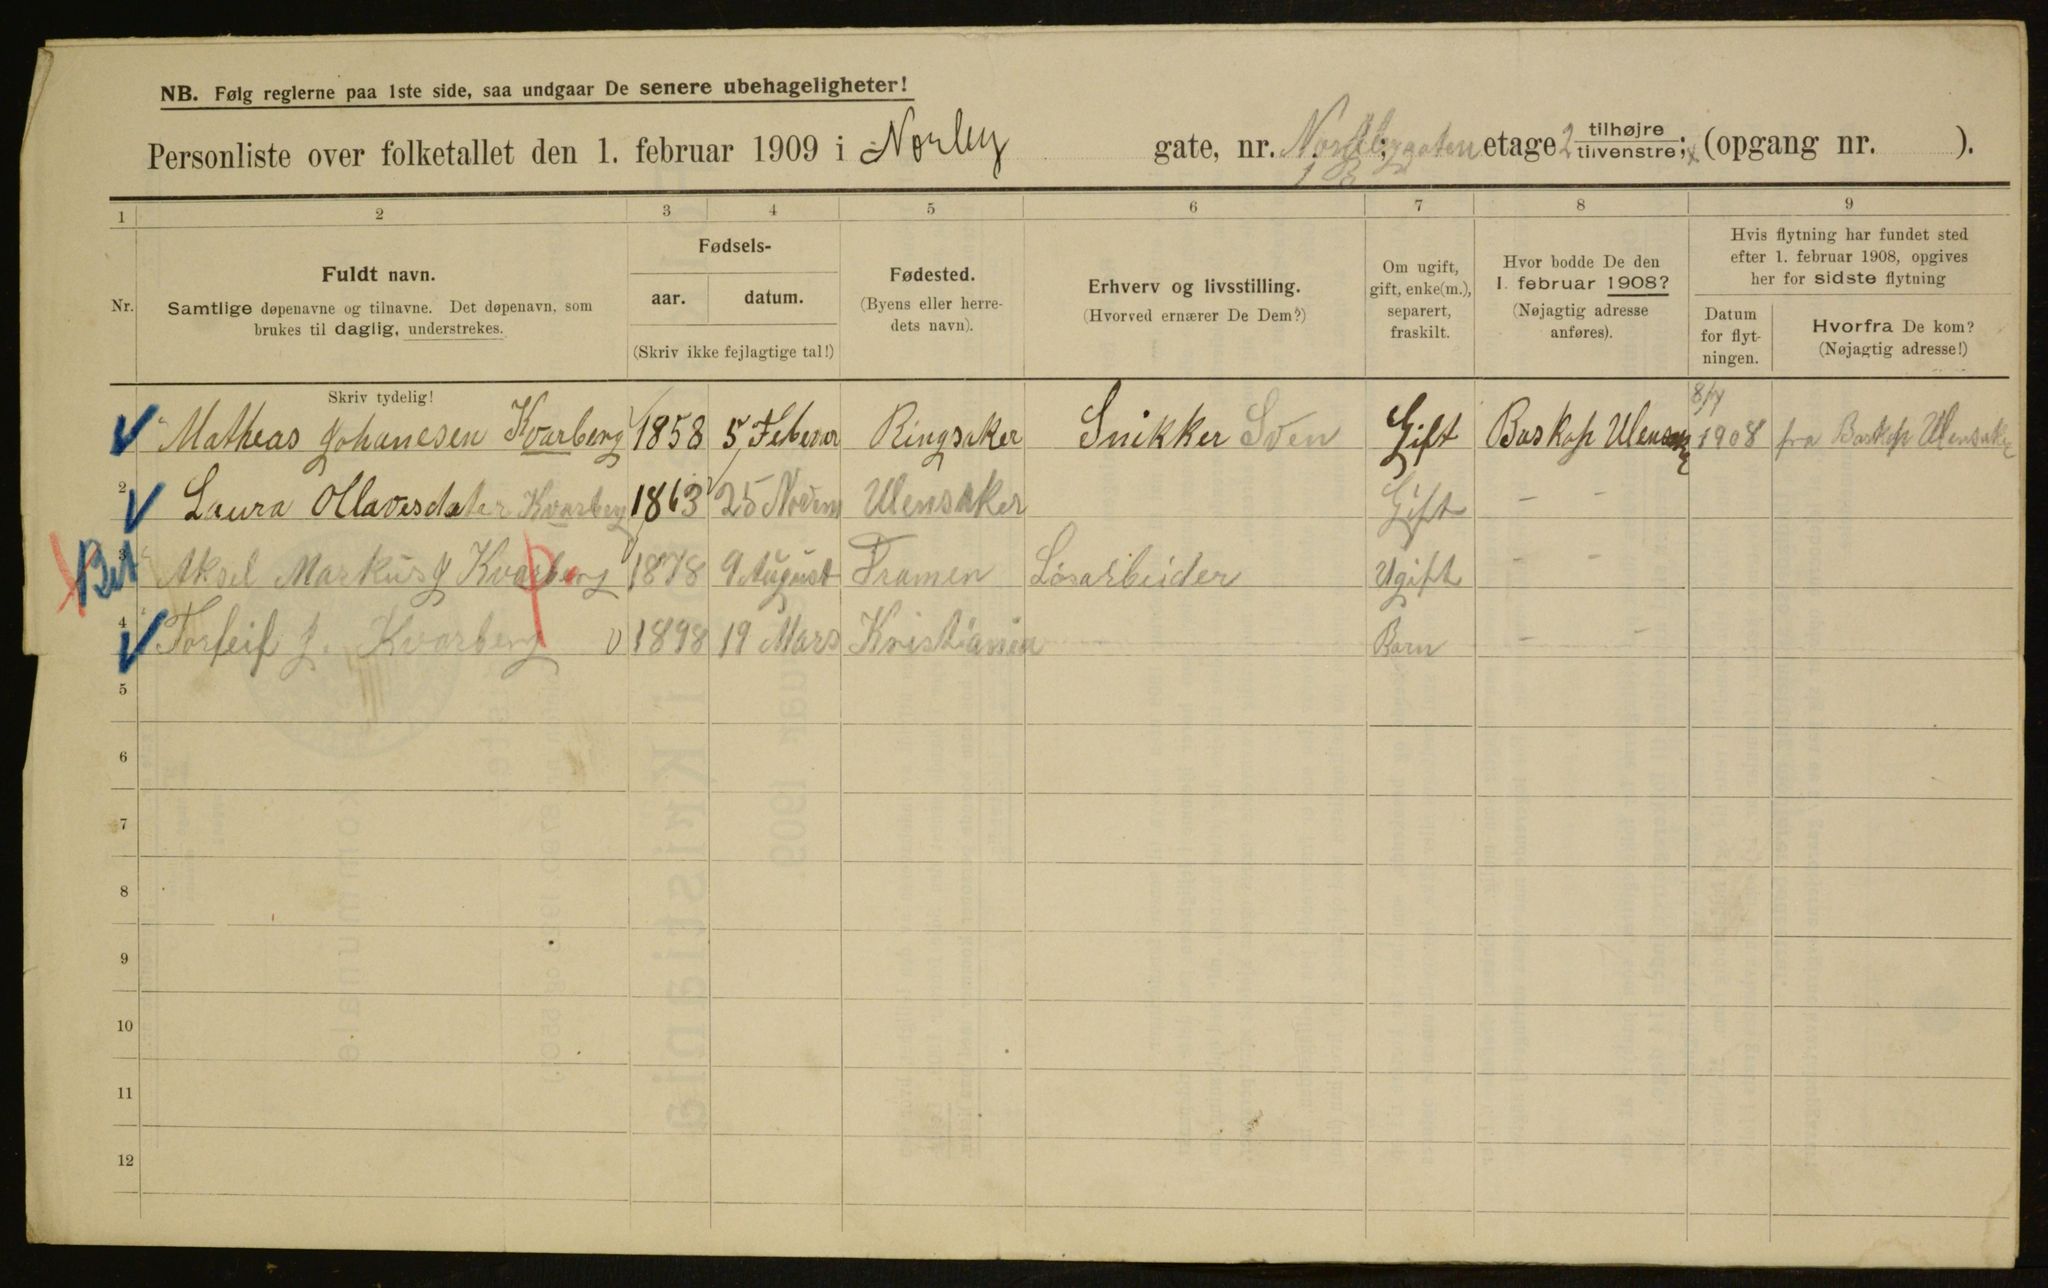 NB. Følg reglerne paa 1ste side, saa undgaar De senere ubehageligheter!
Personliste over folketallet den 1. februar 1909 i Norby gate, nr. ; etage 2 tilhøjre tilvenstre; (opgang nr. ).
1 2 3 4 5 6 7 8 9
Nr.
Fuldt navn.
Samtlige døpenavne og tilnavne. Det døpenavn, som
brukes til daglig, understrekes.
Fødsels-
aar. datum.
(Skriv ikke fejlagtige tal!)
Fødested.
(Byens eller herre-
dets navn).
Erhverv og livsstilling.
(Hvorved ernærer De Dem?)
Om ugift,
gift, enke(m.),
separert,
fraskilt.
Hvor bodde De den
1. februar 1908?
(Nøjagtig adresse
anføres).
Hvis flytning har fundet sted
efter 1. februar 1908, opgives
her for sidste flytning
Datum
for flyt-
ningen.
Hvorfra De kom?
(Nøjagtig adresse!)
Skriv tydelig!
Matheas Johanesen Kvarberg 1858 5 Febevar Ringsaker Snikker Sven Gift Baskop 1908 fra Baskop Ulensaker
2 Laura Ollavesdater Kvarberg 1863 25 Novem Ulensaker Gift - -
3 Aksel Markus J Kvarberg 1878 9 August Løsarbeider Ugift - -
4 J. Kvarberg 1898 19 Mars Kristiania Barn - -
5
6
7
8
9
10
11
12